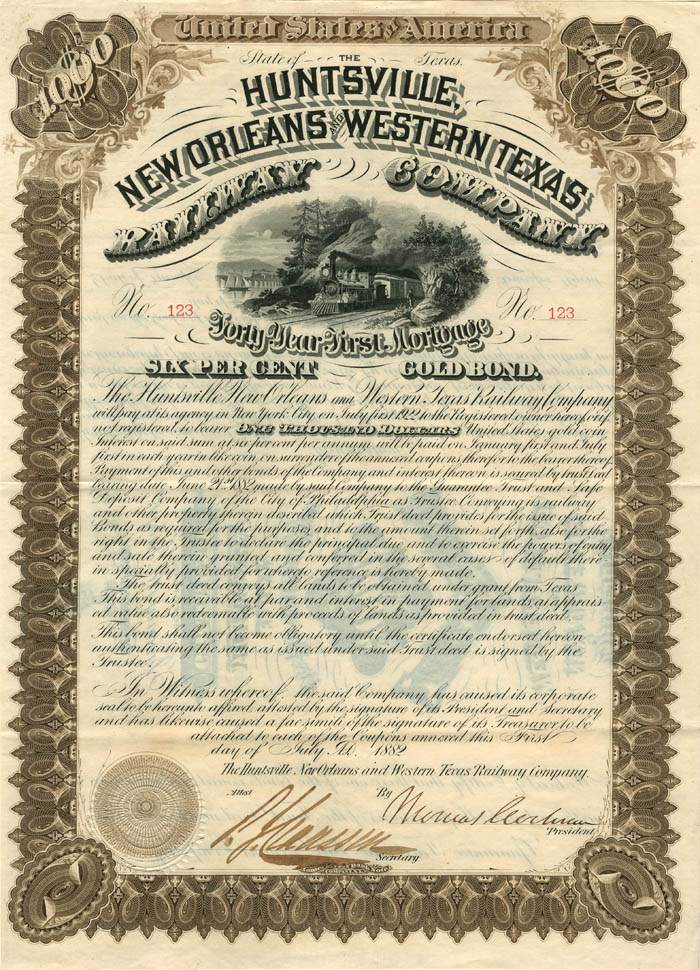 United States of America
$1000
$1000
State of THE Texas.
HUNTSVILLE,
NEW ORLEANS AND WESTERN TEXAS
RAILWAY COMPANY.
No. 123
No. 123
Forty Year First Mortgage
SIX PER CENT GOLD BOND.
The Huntsville New Orleans and Western Texas Railway Company
will pay at its agency in New York City on July first 1922 to the Registered owner hereof or if
not registered, to bearer ONE THOUSAND DOLLARS United States gold coin
Interest on said sum at six per cent per annum will be paid on January first and July
first in each year in like coin on surrender of the annexed coupons therefor to the bearer thereof
Payment of this and other bonds of the Company and interest thereon is secured by trust deed
bearing date June 21st 1882 made by said Company to the Guarantee Trust and Safe
Deposit Company of the City of Philadelphia as Trustee. Conveying its railway
and other property therein described which Trust deed provides for the issue of said
Bonds as required for the purposes, and to the amount therein set forth, also for the
right in the Trustee to declare the principal due and to exercise the powers of entry
and sale therein granted and conferred in the several cases of default there-
in specially provided for whereto reference is hereby made.
The trust deed conveys all lands to be obtained under grant from Texas
This bond is receivable at par and interest in payment for lands at apprais-
ed value also redeemable with proceeds of lands as provided in trust deed.
This bond shall not become obligatory until the certificate endorsed hereon
authenticating the same as issued under said Trust deed is signed by the
Trustee.
In Witness whereof, the said Company has caused its corporate
seal to be hereunto affixed, attested by the signature of its President and Secretary
and has likewise caused a fac-simile of the signature of its Treasurer to be
attached to each of the Coupons annexed this First
day of July A.D. 1882
The Huntsville, New Orleans and Western Texas Railway Company.
Attest
By Thomas Cochran
President
Secretary